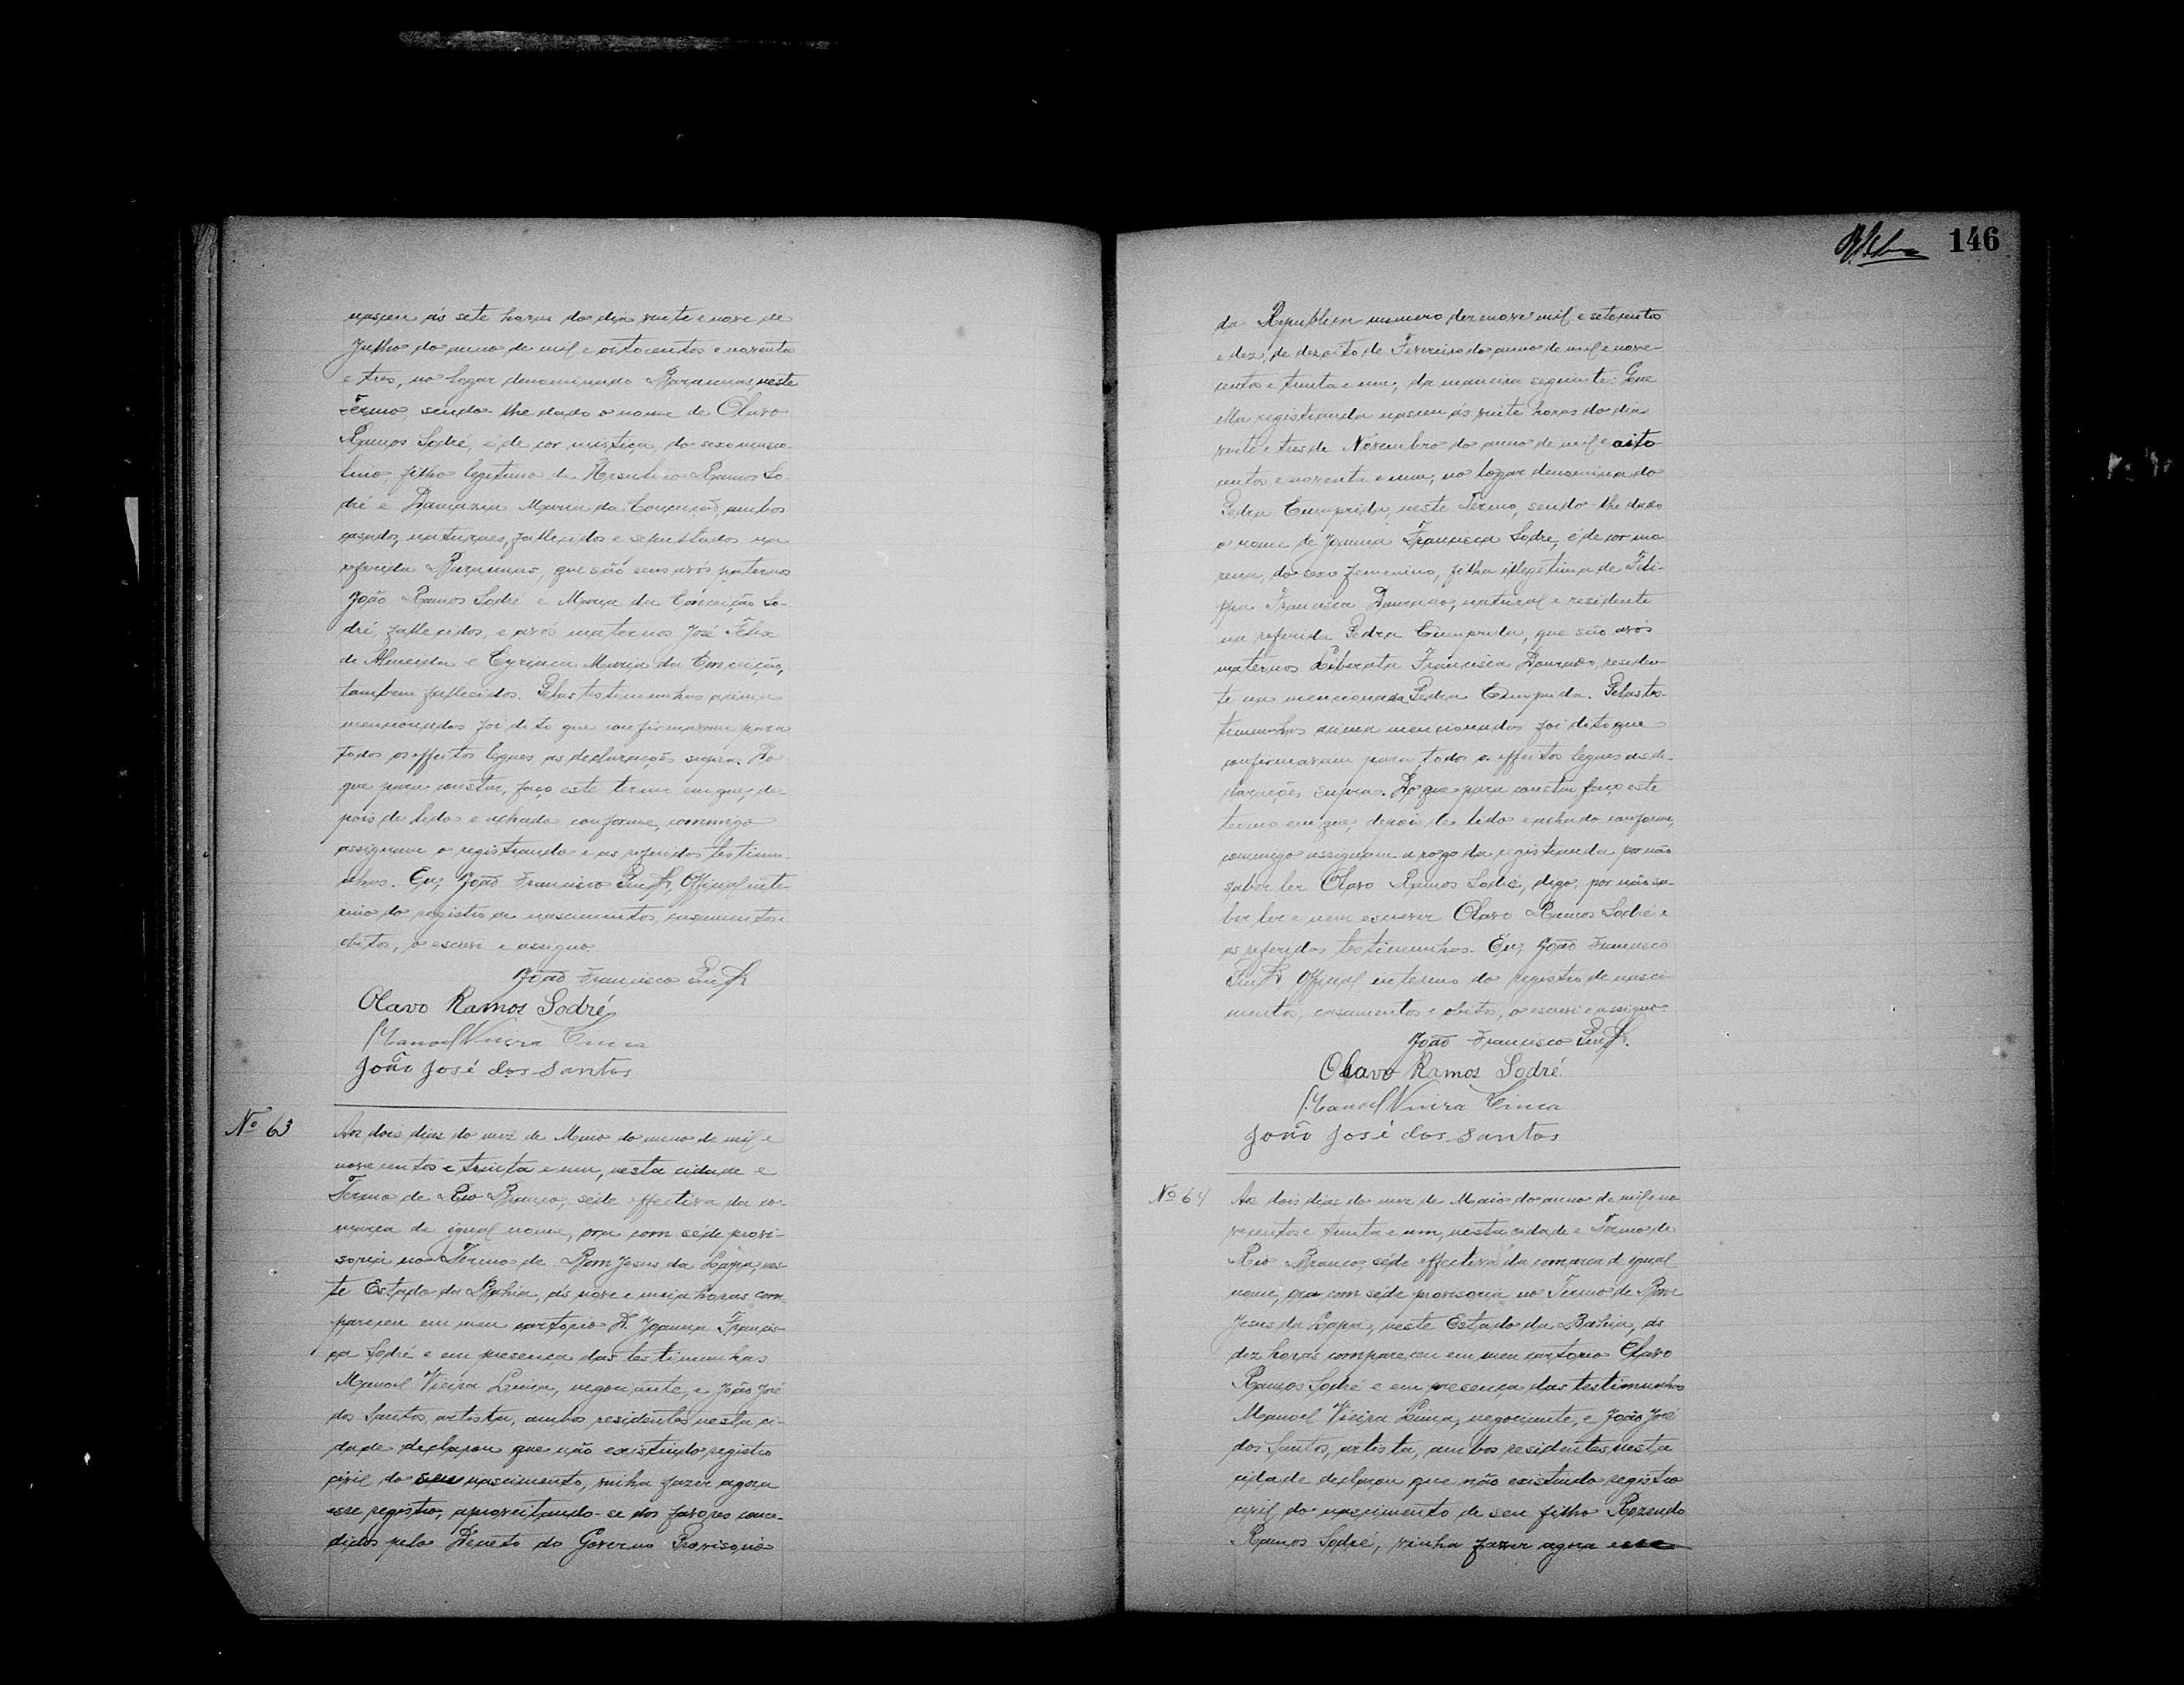 nasceu ás sete horas do dia vinte e nove de
Julho do anno de mil e oitocentos e noventa
e tres, no logar denominado Baraunas, neste
Termo sendo-lhe dado o nome de Olavo
Ramos Sodré, é de cor mistiça, do sexo mascu-
lino, filho legitimo de Ramos So-
dré e Damazia Maria da Conceição, ambos
casados, naturaes, fallecidos e sepultados na
referida Baraunas, que são seus avós paternos
João Ramos Sodré e Maria da Conceição So-
dré, fallecidos, e avós maternos José Felix
de Almeida e Cyriaca Maria da Conceição,
tambem fallecidos. Pelas testimunhas acima
mencionadas foi dito que confirmavam para
todos os effeitos legaes as declarações supra. Do
que para constar, faço este termo em que, de-
pois de lido e achado conforme, commigo
assignam o registrando e as referidas testimu-
nhas. Eu, João Francisco Official inte-
rino do registro de nascimentos, casamentos e
obitos, o escrevi e assigno
João Francisco
Olavo Ramos Sodré
Manoel Vieira Lima
João José dos Santos
Nº 63
Aos dois dias do mez de Maio do anno de mil e
novecentos e trinta e um, nesta cidade e
Termo de Rio Branco, séde effectiva da co-
marca de igual nome, ora com séde provi-
soria no Termo de Bom Jesus da Lapa, nes-
te Estado da Bahia, ás nove e meia horas com-
pareceu em meu cartorio D. Joanna Francis-
ca Sodré e em presença das testimunhas
Manoel Vieira Lima, negociante, e João José
dos Santos, artista, ambos residentes nesta ci-
dade declarou que não existindo registro
civil do seu nascimento, vinha fazer agora
esse registro, aproveitando-se dos favores conce-
didos pelo Decreto do Governo Provisorio
146
da Republica numero dezenove mil e setecentos
e dez, de dezoito de Fevereiro do anno de mil e nove-
centos e trinta e um, da maneira seguinte: Que
ella registranda nasceu ás vinte horas do dia
vinte e tres de Novembro do anno de mil e oito-
centos e noventa e um, no logar denominado
Pedra Cumprida, neste Termo, sendo-lhe dado
o nome de Joanna Francisca Sodré, é de cor mo-
rena, do sexo femenino, filha illegitima de Feli-
ppa Francisca Dourado, natural e residente
na referida Pedra Cumprida, que são avós
maternos Liberata Francisca Dourado, residen-
te na mencionada Pedra Cumprida. Pelas tes-
timunhas acima mencionadas foi dito que
confirmavam para todos os effeitos legaes as de-
clarações supra. Do que para constar faço este
termo em que, depois de lido e achado conforme,
commigo assignam a rogo da registranda por não
saber ler Olavo Ramos Sodré, digo, por não sa-
ber ler e nem escrever Olavo Ramos Sodré e
as referidas testimunhas. Eu, João Francisco
Official interino do registro de nasci-
mentos, casamentos e obitos, o escrevi e assigno
João Francisco
Olavo Ramos Sodré
Manoel Vieira Lima
João José dos Santos
Nº 64
Aos dois dias do mez de Maio do anno de mil e no-
vecentos e trinta e um, nesta cidade e Termo de
Rio Branco séde effectiva da comarca de igual
nome, ora com séde provisoria no Termo de Bom
Jesus da Lapa, neste Estado da Bahia, ás
dez horas compareceu em meu cartorio Olavo
Ramos Sodré e em presença das testimunhas
Manoel Vieira Lima, negociante, e João José
dos Santos, artista, ambos residentes nesta
cidade declarou que não existindo registro
civil do nascimento de seu filho Rozendo
Ramos Sodré, vinha fazer agora esse